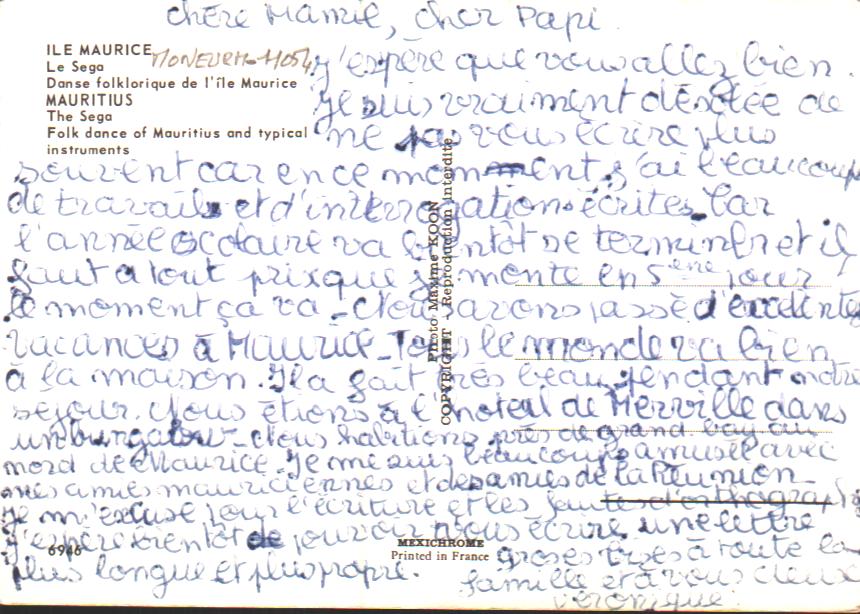 chère Mamie, cher Papi
ILE MAURICE
Le Sega
Danse folklorique de l'île Maurice
MAURITIUS
The Sega
Folk dance of Mauritius and typical
instruments
j'espère que vous allez bien.
Je suis vraiment désolée de
ne pas vous écrire plus
souvent car en ce moment j'ai beaucoup
de travail et d'interrogations écrites. Car
l'année scolaire va bientôt se terminer et il
faut a tout prix que je monte en 5ème pour
le moment ça va - Nous avons passé d'excelentes
vacances à Maurice - Tous le monde va bien
à la maison. Il a fait très beau pendant notre
séjour. Nous étions à l'hoteal de Merville dans
un bungalow - Nous habitions près de grand bay au
nord de Maurice. Je me suis beaucoup amusé avec
mes amies mauriciennes et des amies de la Réunion
Je m'excuse pour l'écriture et les fautes d'orthographe
J'espère bientôt de pouvoir vous écrire une lettre
plus longue et plus propre.
groses bises à toute la
famille et à vous deux
véronique.
Photo Maxime KOON
COPYRIGHT Reproduction interdite
6946
MEXICHROME
Printed in France